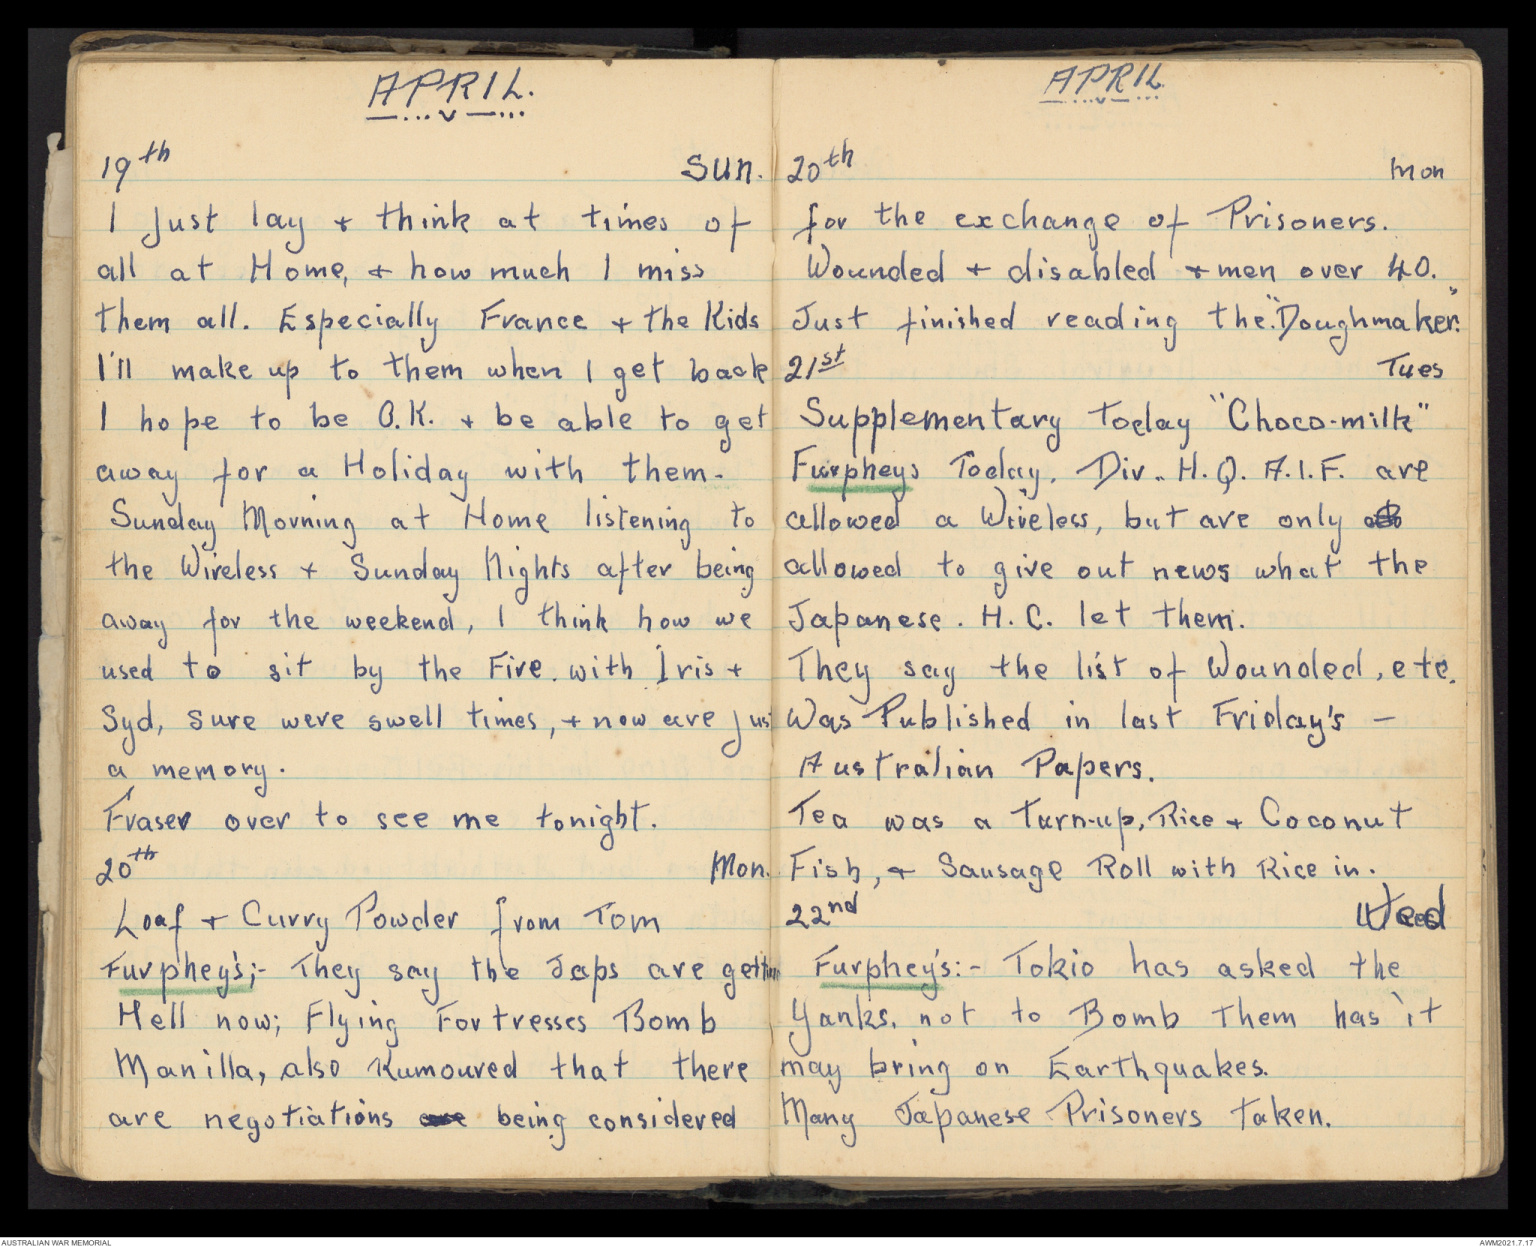 APRIL.
19th Sun.
I just lay + think at times of
all at Home, + how much I miss
them all. Especially France + the Kids
I'll make up to them when I get back
I hope to be O.K. + be able to get
away for a Holiday with them.
Sunday Morning at Home listening to
the Wireless + Sunday Nights after being
away for the weekend, I think how we
used to sit by the Fire. with Iris +
Syd, sure were swell times, + now are just
a memory.
Fraser over to see me tonight.
20th Mon.
Loaf + Curry Powder from Tom
Furphey's;- They say the Japs are getting
Hell now; Flying Fortresses Bomb
Manilla, also Rumoured that there
are negotiations being considered
APRIL
20th Mon
for the exchange of Prisoners.
Wounded + disabled + men over 40.
Just finished reading the "Doughmaker."
21st Tues
Supplementary Today "Choco-milk"
Furpheys Today. Div. H.Q. A.I.F. are
allowed a Wireless, but are only
allowed to give out news what the
Japanese. H.C. let them.
They say the list of Wounded, etc.
Was Published in last Friday's -
Australian Papers.
Tea was a Turn-up, Rice + Coconut
Fish, + Sausage Roll with Rice in.
22nd Wed
Furphey's:- Tokio has asked the
Yanks. not to Bomb Them has it
may bring on Earthquakes.
Many Japanese Prisoners taken.
AUSTRALIAN WAR MEMORIAL
AWM2021.7.17